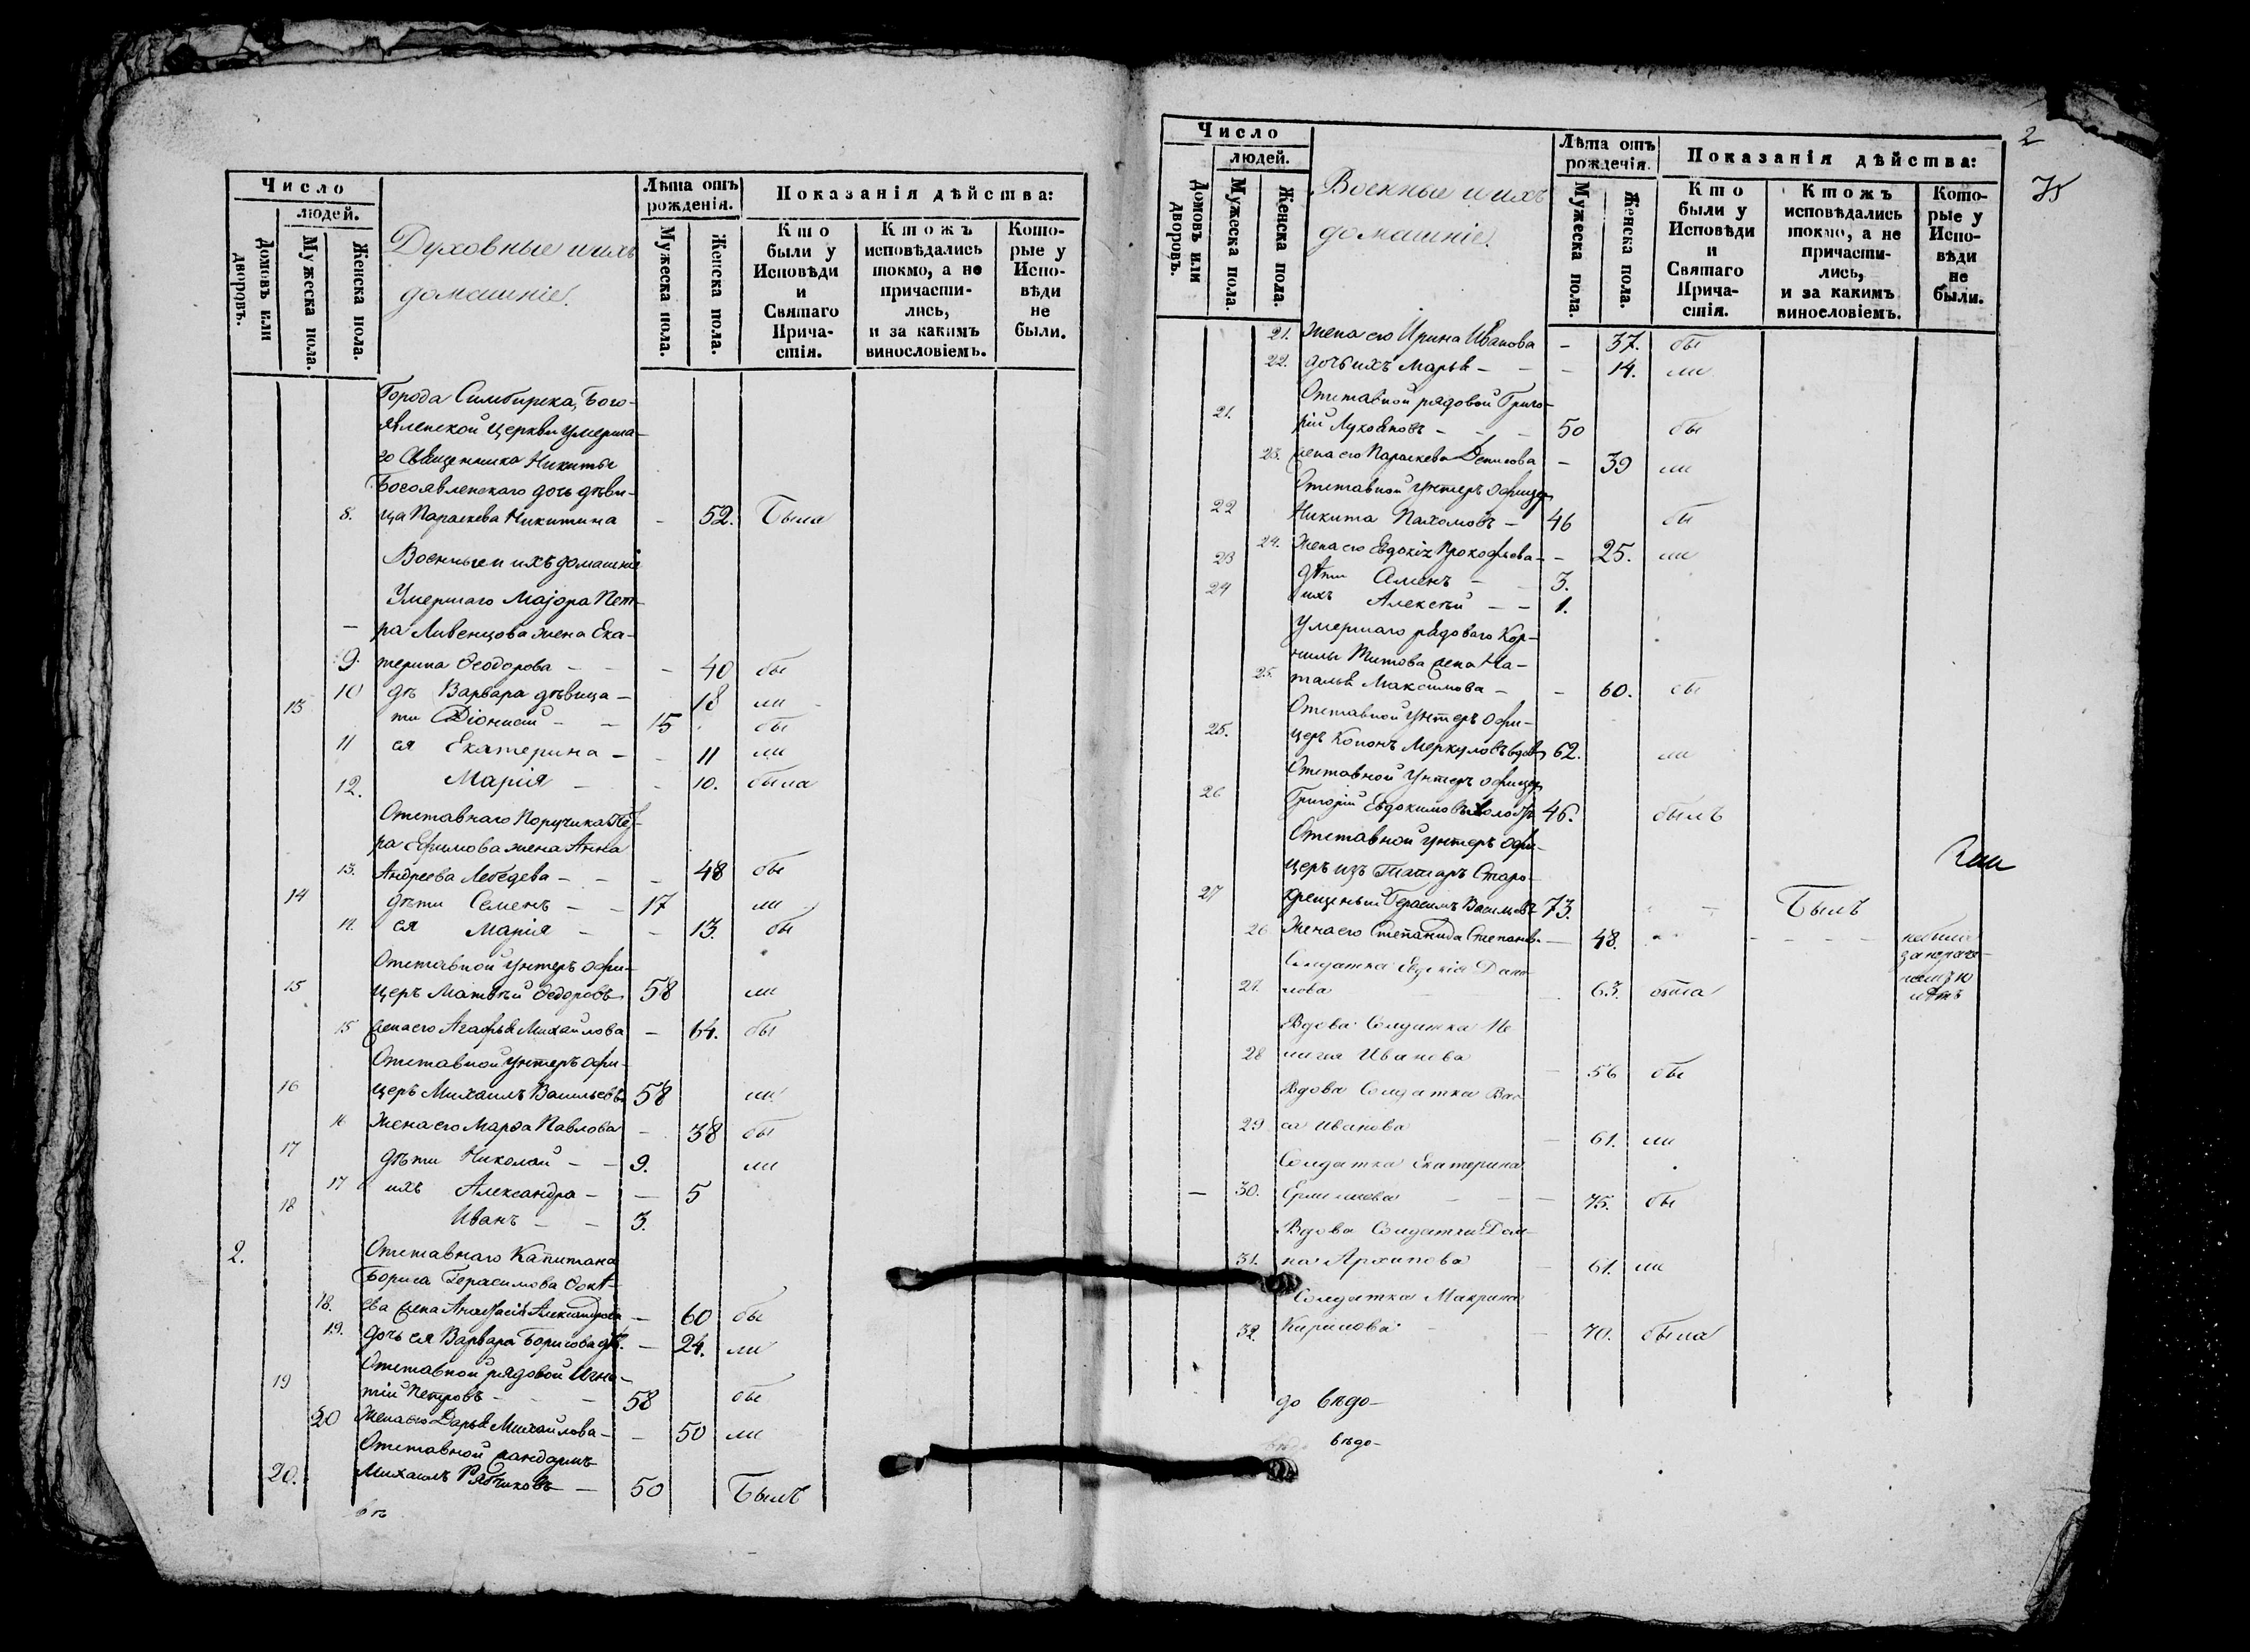 Число
людей.
Домовъ или дворовъ.
Мужеска пола.
Женска пола.
Духовные и ихъ
домашніе.
Лѣта отъ
рожденія.
Мужеска пола.
Женска пола.
Показанія дѣйства:
Кто
были у
Исповѣди
и
Святаго
Прича-
стія.
Ктожъ
исповѣдались
токмо, а не
причасти-
лись,
и за какимъ
винословіемъ.
Кото-
рые у
Испо-
вѣди
не
были.
Города Симбирска, Бого-
явленской Церкви умерша-
го Священника Никиты
Богоявленскаго дочь дѣви-
8. ца Параскева Никитина - 52. Была
Военные и ихъ домашніе
Умершаго Маіора Пет-
- ра Ливенцова жена Ека-
9. терина Ѳеодорова - - 40 бы
10 дѣ Варвара дѣвица - 18 ли
13 ти Діонисій - - 15 бы
11 ея Екатерина - - 11 ли
12. Марія - - 10. была
Отставнаго Поручика Пет-
ра Ефимова жена Анна
13. Андреева Лебедева - - - 48 бы
14 дѣти Семенъ - - 17 ли
14. ея Марія - - 13. бы
Отставной унтеръ офи-
15 церъ Матвѣй Ѳедоровъ 58 ли
15 жена его Агафья Михайлова - 64. бы
Отставной унтеръ офи-
16 церъ Михаилъ Васильевъ 58 ли
16 Жена его Марѳа Павлова - 38 бы
17 дѣти Николай - - 9. ли
17 ихъ Александра - - 5
18 Иванъ - - 3.
2. Отставнаго Капитана
Бориса Герасимова
18. жена Анастасія Александрова - 60 бы
19. дочь ея Варвара Борисова дѣв. - 24. ли
Отставной рядовой Игна-
19 тій Петровъ - - - 58 бы
20 Жена его Дарья Михайлова - - 50 ли
Отставной жандармъ
20. Михаилъ Рябчиковъ - 50 Былъ
2
Число
людей.
Домовъ или дворовъ.
Мужеска пола.
Женска пола.
Военные и ихъ
домашніе.
Лѣта отъ
рожденія.
Мужеска пола.
Женска пола.
Показанія дѣйства:
Кто
были у
Исповѣди
и
Святаго
Прича-
стія.
Ктожъ
исповѣдались
токмо, а не
причасти-
лись,
и за какимъ
винословіемъ.
Кото-
рые у
Испо-
вѣди
не
были.
21. жена его Ирина Иванова - 37. бы
22. дочь ихъ Марья - - - 14. ли
Отставной рядовой Григо-
21. рій Лукояновъ - - - 50 бы
23. жена его Параскева Денисова - 39 ли
Отставной унтеръ офицеръ
22 Никита Пахомовъ - 46 бы
24. Жена его Евдокія Прокофьева - - 25. ли
23 дѣти - - 3.
24 ихъ Алексѣй - - 1.
Умершаго рядоваго Кор-
нилы Титова жена На-
25. талья Максимова - - 60. бы
Отставной унтеръ офи-
25. церъ Кононъ Меркуловъ вдов. 62. ли
Отставной унтеръ офицеръ
26 Григорій Евдокимовъ 46. былъ
Отставной унтеръ офи-
церъ изъ Татаръ Старо-
27 крещеный Герасимъ Васильевъ 73. - Былъ
26 Жена его Степанида Степанов. - 48. - - - - не была
Солдатка Евдокія
27. - 63. была
Вдова Солдатка
28 Иванова - 56 бы
Вдова Солдатка Вас-
29 са Иванова - 61. ли
Солдатка Екатерина
- 30. - - - 75. бы
Вдова Солдатка Дом-
31. на Архипова - 61. ли
Солдатка Макрина
32. Кирилова - - 70. была
до вѣдо-
вѣдо-